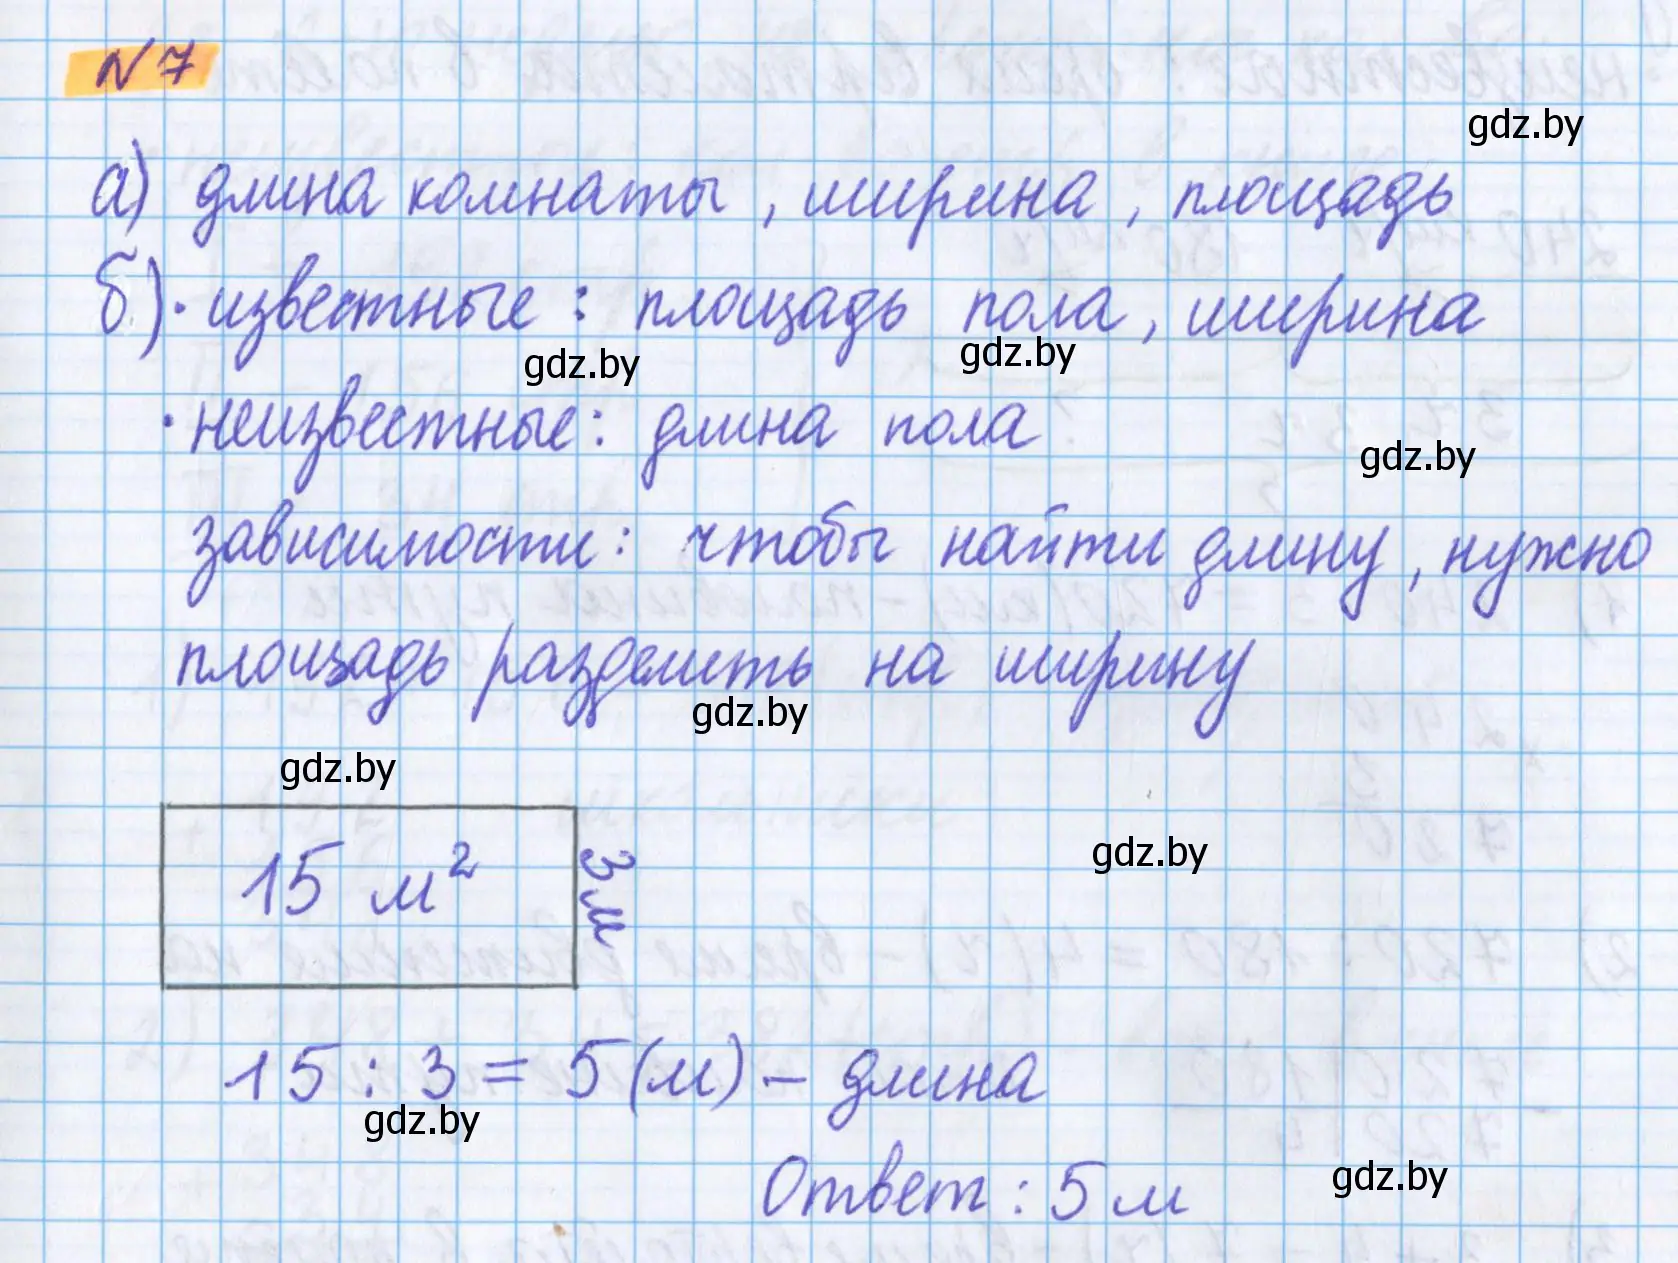 №7
gdz.by
а) длина комнаты, ширина, площадь
б) · известные: площадь пола, ширина
gdz.by
gdz.by
· неизвестные: длина пола
gdz.by
зависимости: чтобы найти длину, нужно
площадь разделить на ширину
gdz.by
gdz.by
15 м²
3м
gdz.by
15 : 3 = 5 (м) – длина
gdz.by
Ответ: 5 м
gdz.by